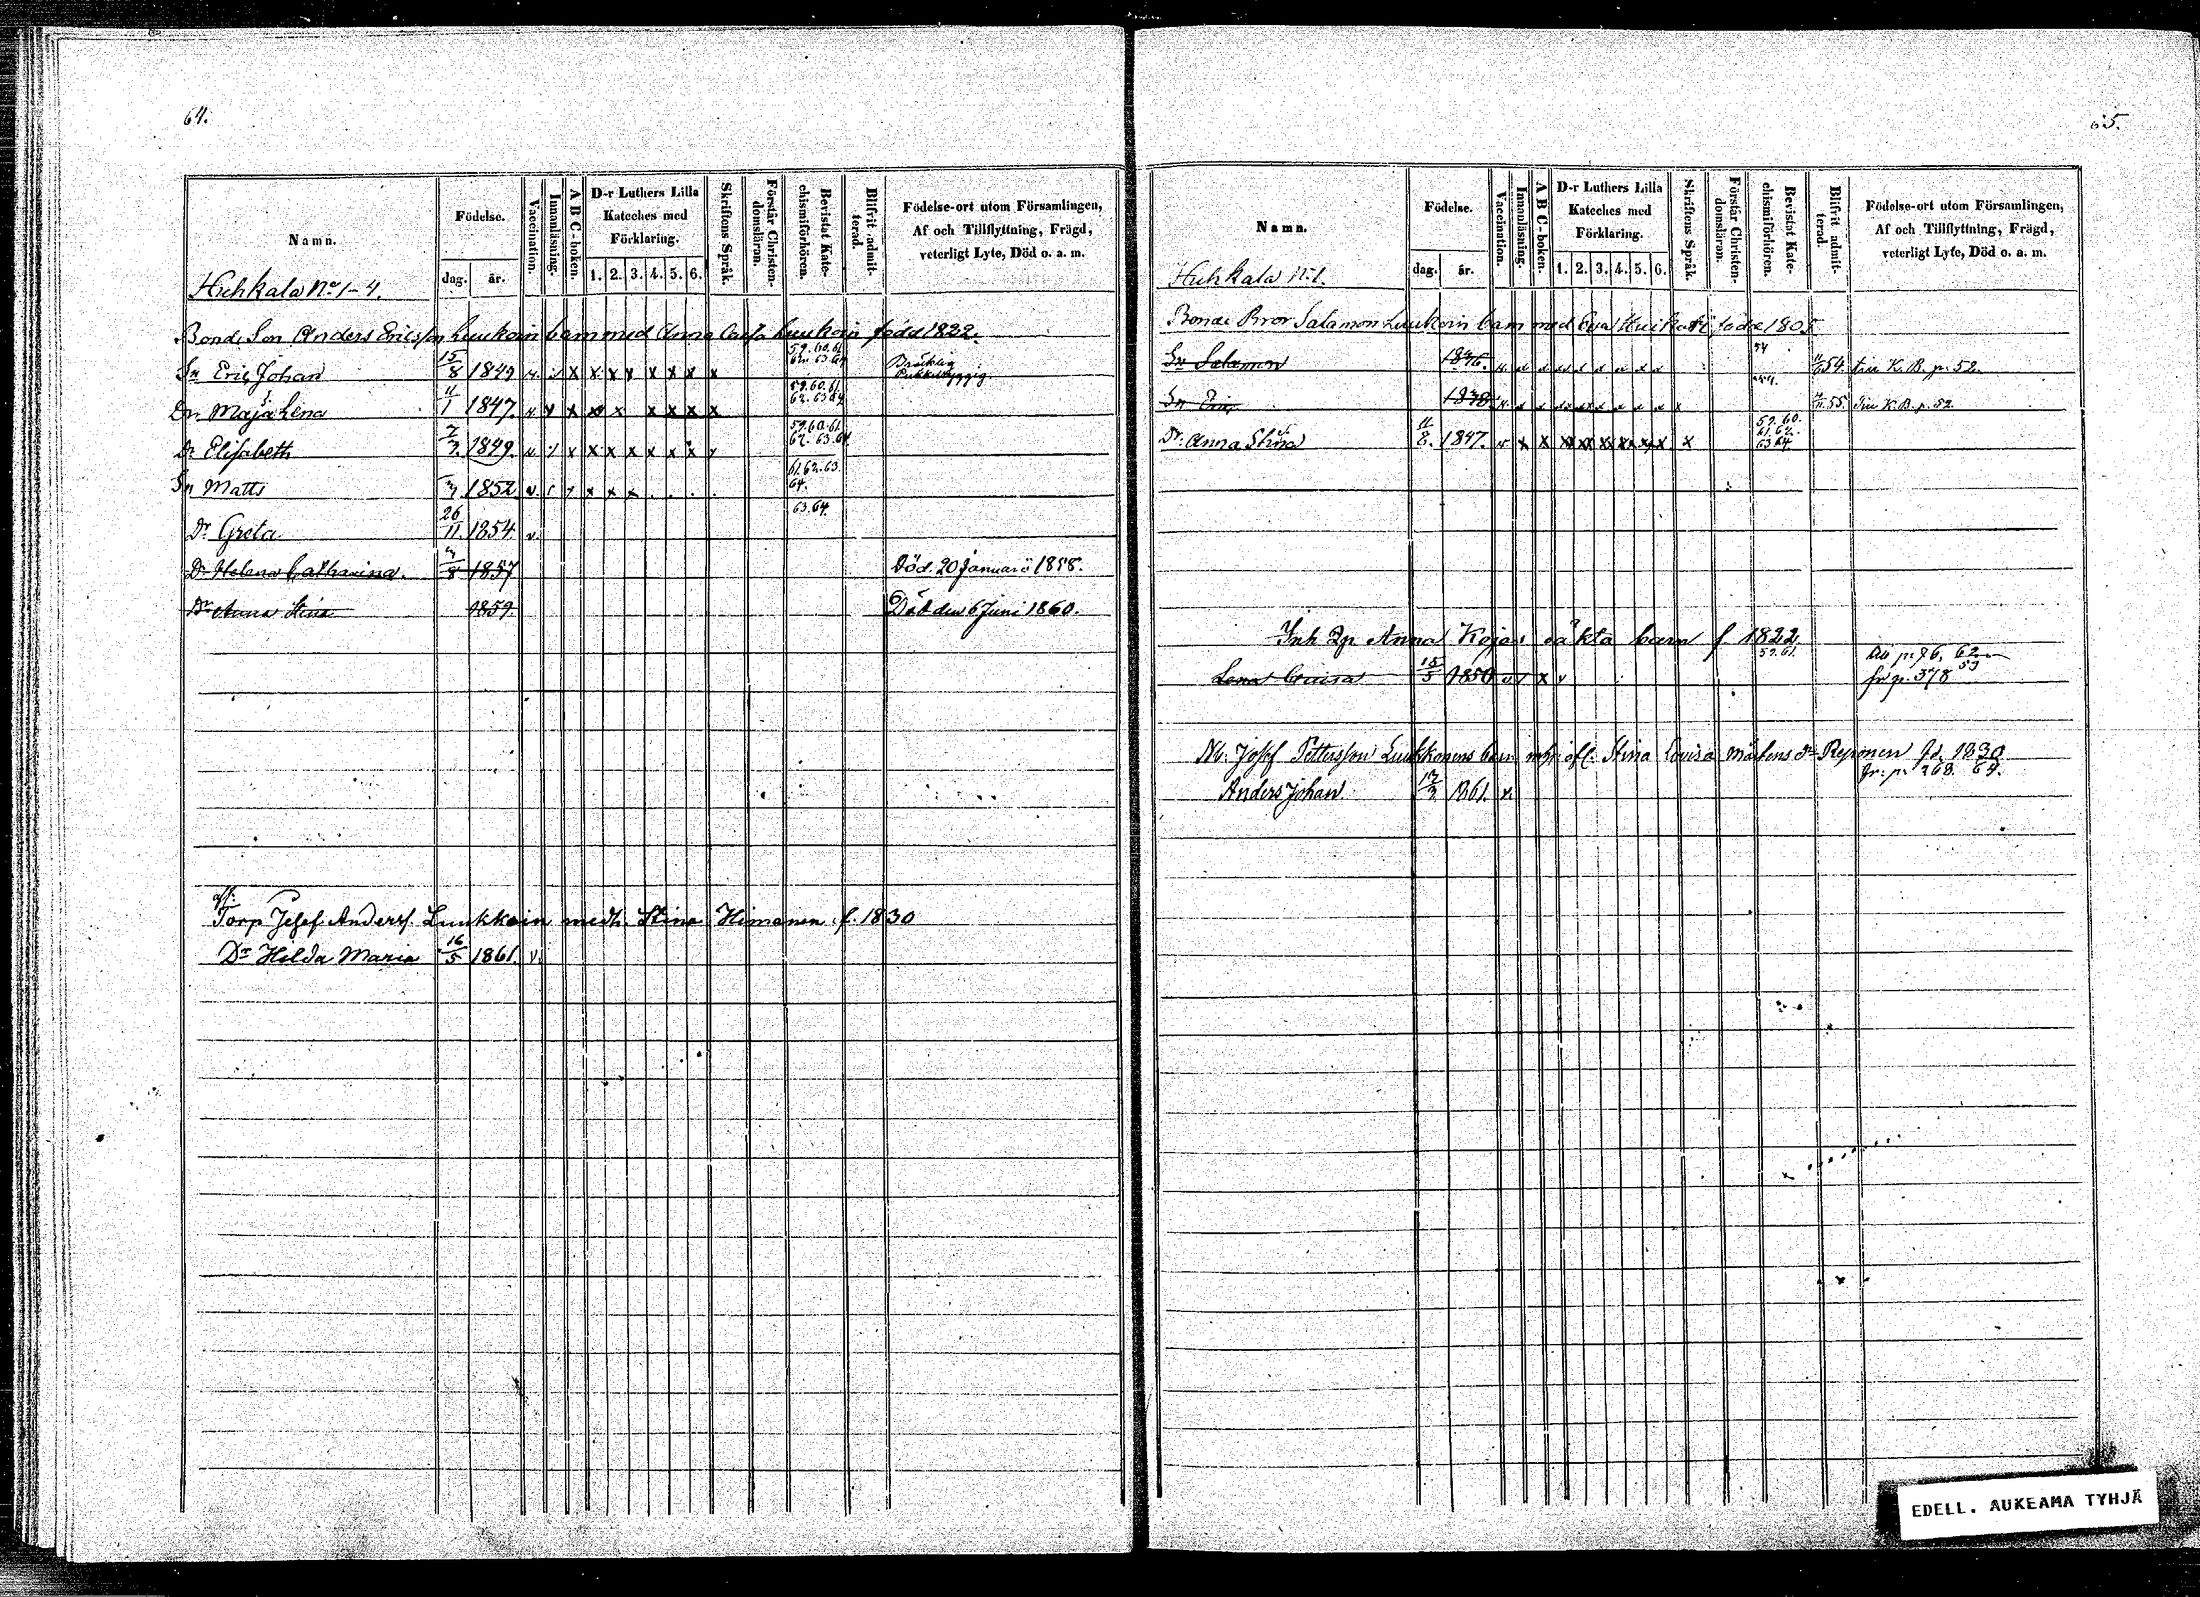 64.
Namn.
Födelse.
dag. år.
Vaccination.
Innanläsning.
A B C-boken.
D-r Luthers Lilla Kateches med Förklaring.
1. 2. 3. 4. 5. 6.
Skriftens Språk.
Förstår Christen-domsläran.
Bevistat Kate-chismiförhören.
Blifvit admit-terad.
Födelse-ort utom Församlingen, Af och Tillflyttning, Frägd, veterligt Lyte, Död o. a. m.
Huhkala No 1-4.
Bonde Son Anders Ericsson Luukoin barn med Anna Luukoin född 1822.
Sn Eric Johan 15/8 1849 v. x x x x x x x 59.60.61. 62. 63.64
Dr Maja Lena 11/1 1847. v x x x x x x x 59.60.61. 62. 63.64
Dr Elisabeth 2/3. 1849. v x x x x x x 59.60.61. 62. 63.64
Sn Matts 1852 v. x x x 61.62.63. 64.
Dr Greta 26/11. 1854. v. 63.64.
Dr Helena Catharina. 1857 Död. 20 Januari 1858.
Dr Anna Stina 1859. Död den 6 Juni 1860.
Torp Josef Anderss. Luukkoin medh. Stina Himanen f. 1830
Dr Hilda Maria 16/5 1861. v.
65.
Namn.
Födelse.
dag. år.
Vaccination.
Innanläsning.
A B C-boken.
D-r Luthers Lilla Kateches med Förklaring.
1. 2. 3. 4. 5. 6.
Skriftens Språk.
Förstår Christen-domsläran.
Bevistat Kate-chismiförhören.
Blifvit admit-terad.
Födelse-ort utom Församlingen, Af och Tillflyttning, Frägd, veterligt Lyte, Död o. a. m.
Huhkala No 1.
Bonde Bror Salamon Luukoin barn med Eva född 1805
Sn Salamon 1836. v. 54 54. K. B. p. 52.
Sn Eric 1838 v. 55. K. B. p. 52.
Dr Anna Stina 11/8. 1847. v x x x x x x x x x 59.60. 61.62. 63 64
Inh Anna Kojas oäkta barn f. 1822
Lena Lovisa 15/5 1850 v x v 59.61. p. 76, 62 fr p. 578 59
Josef Pettersson Luukkonens barn Stina Lovisa Mårtens dr Reponen fd. 1830
Anders Johan 1861. v. fr. p. 268. 64.
EDELL. AUKEAMA TYHJÄ